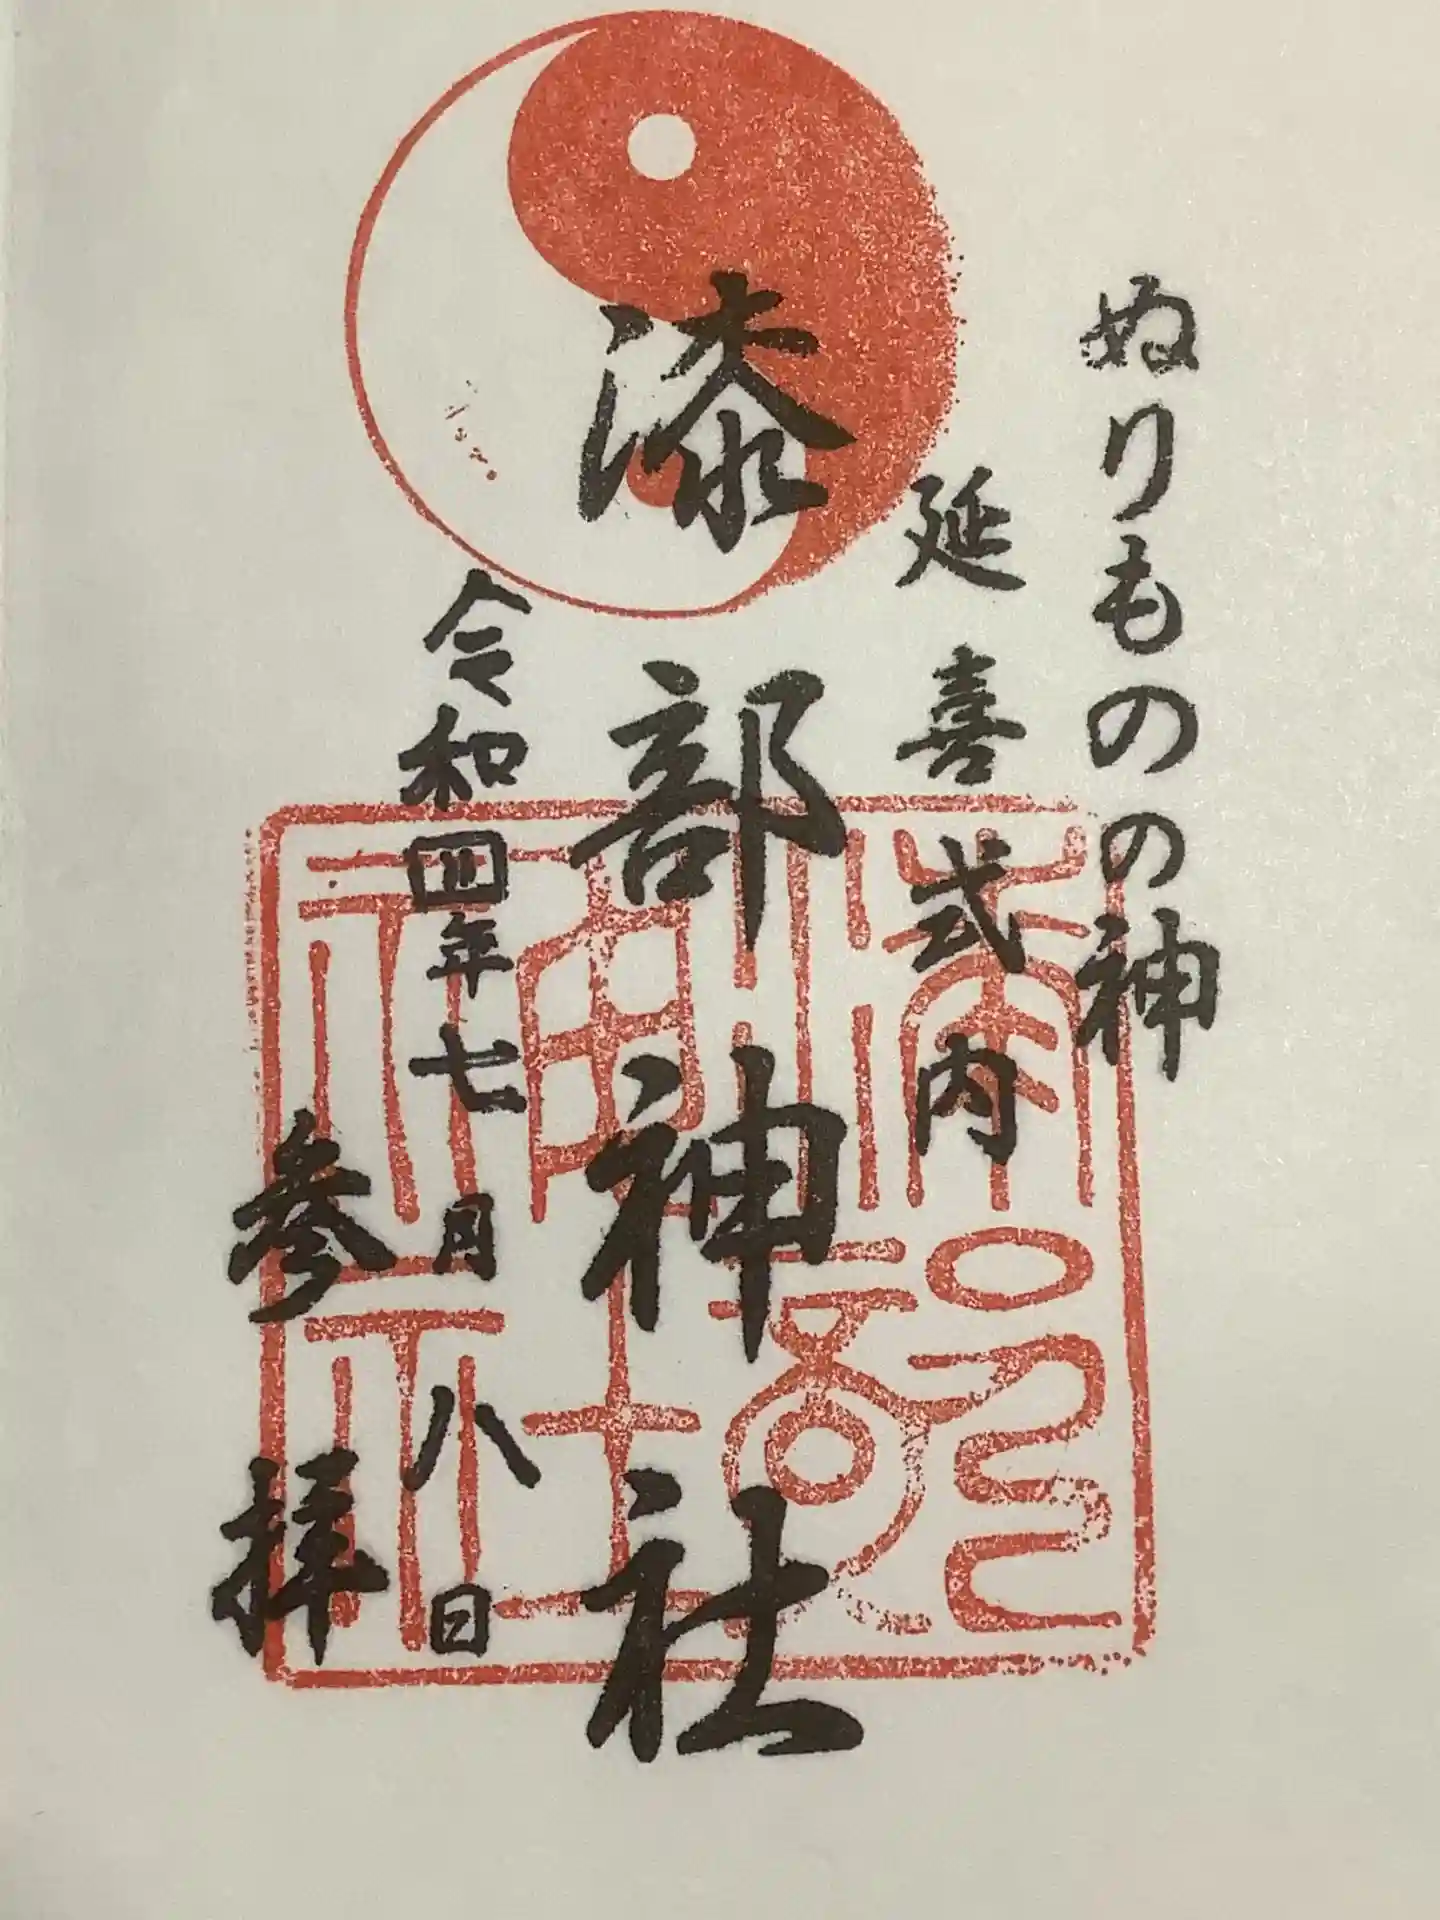 ぬりものの神
延喜式内
漆部神社
令和四年七月八日
参拝
漆部神社